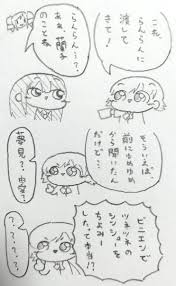 これ、
らんらんに
渡して
きて！
らんらん…？
あれ、蘭子
のことね
そういえば、
前にゆめゆめ
から聞いたん
だけど…
夢見？
ピニエンで
ツネツネの
シンシ
ちよみー
したって本当！？
？？？？